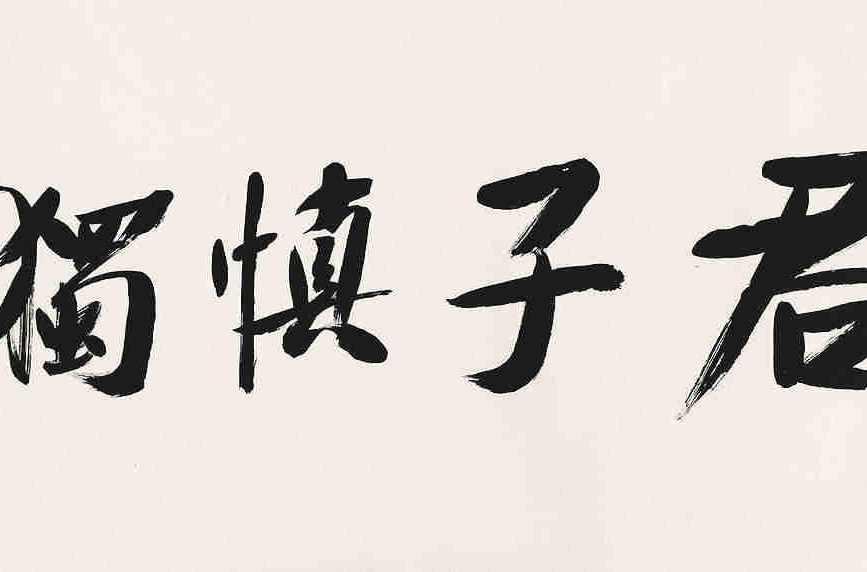 君子慎獨